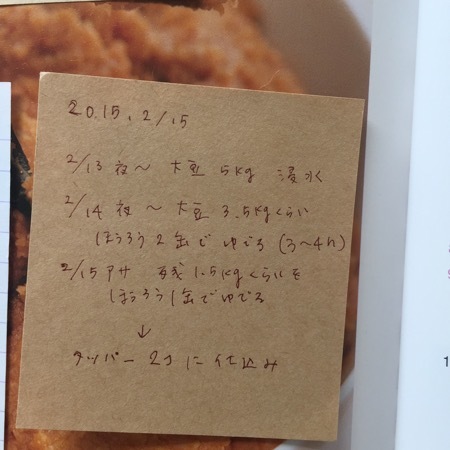 2015, 2/15
2/13 夜〜 大豆 5kg 浸水
2/14 夜〜 大豆 3.5kgくらい
ほうろう2缶でゆでる (3〜4h)
2/15 アサ 残 1.5kgくらいを
ほうろう1缶でゆでる
↓
タッパー 2コに仕込み
1